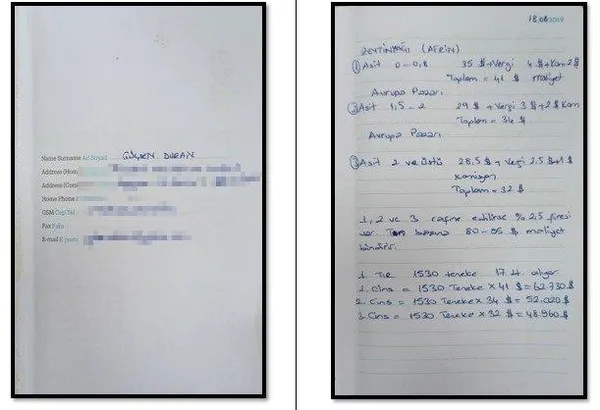 Name Surname Ad Soyad GÜLŞEN DURAN
Address (Hom
Address (Com
Home Phone
GSM Cep Tel
Fax Faks
E-mail E-posta
18.08.2019
ZEYTİNYAĞI (AFRİN)
① Asit 0-0,8 35 $ + Vergi 4 $ + Kom 2 $
Toplam = 41 $ maliyet
Avrupa Pazarı
② Asit 1,5-2 29 $ + Vergi 3 $ + 2 $ Kom
Toplam = 34 $
Avrupa Pazarı
③ Asit 2 ve üstü 28,5 $ + Vergi 2.5 $ + 1 $
komisyon
Toplam = 32 $
1, 2 ve 3 rafine edilirse % 2,5 firesi
var. Ton başına 80-85 $ maliyet
bindirir.
1 Tır 1530 teneke 17 alıyor
1. Cins = 1530 Teneke x 41 $ = 62.730 $
2. Cins = 1530 Teneke x 34 $ = 52.020 $
3. Cins = 1530 Teneke x 32 $ = 48.960 $